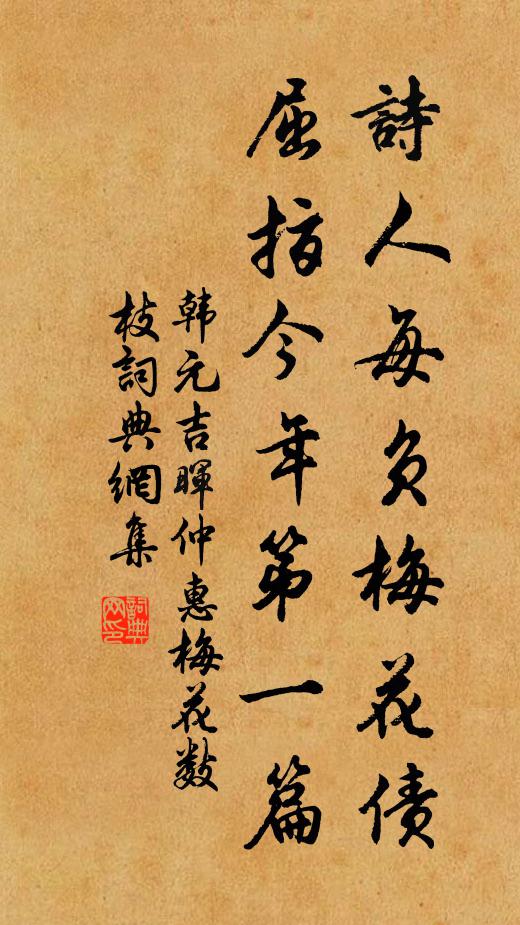 詩人每负梅花债
屈指今年第一篇
韩元吉暉仲惠梅花数
枝詞典網集
詞典
网印